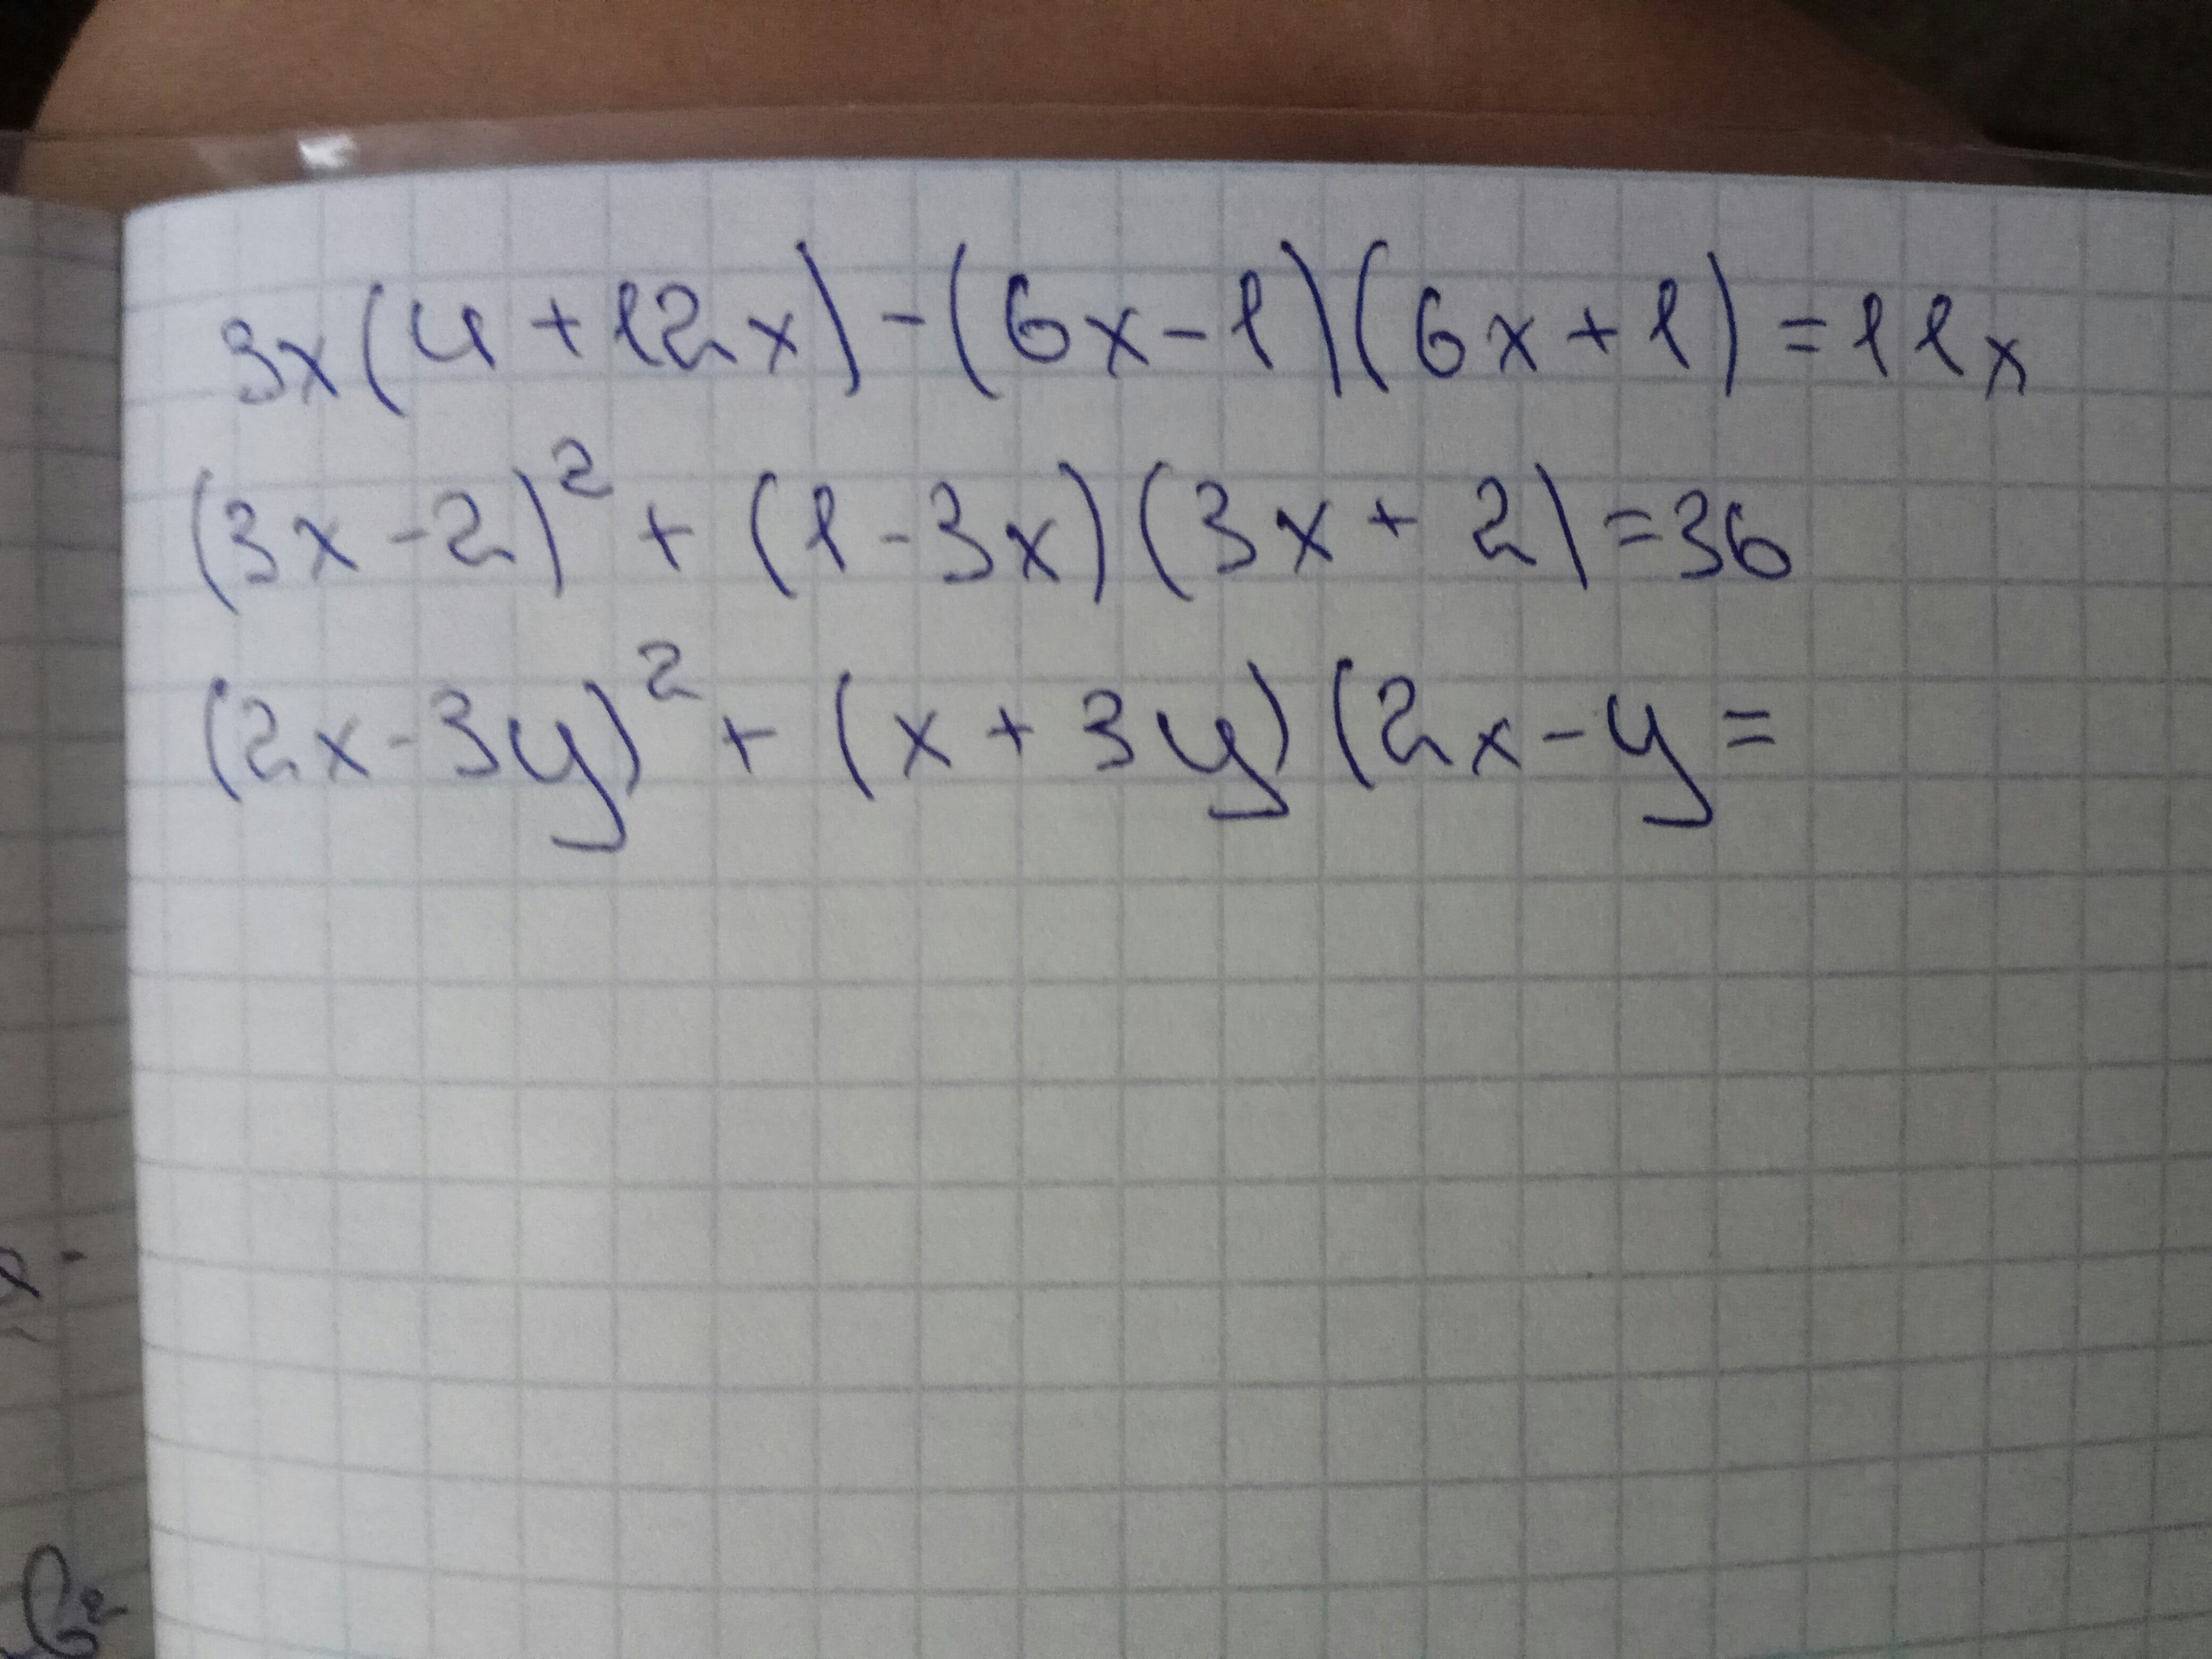 3x(4+12x)-(6x-1)(6x+1)=11x
(3x-2)²+(1-3x)(3x+2)=36
(2x-3y)²+(x+3y)(2x-y=